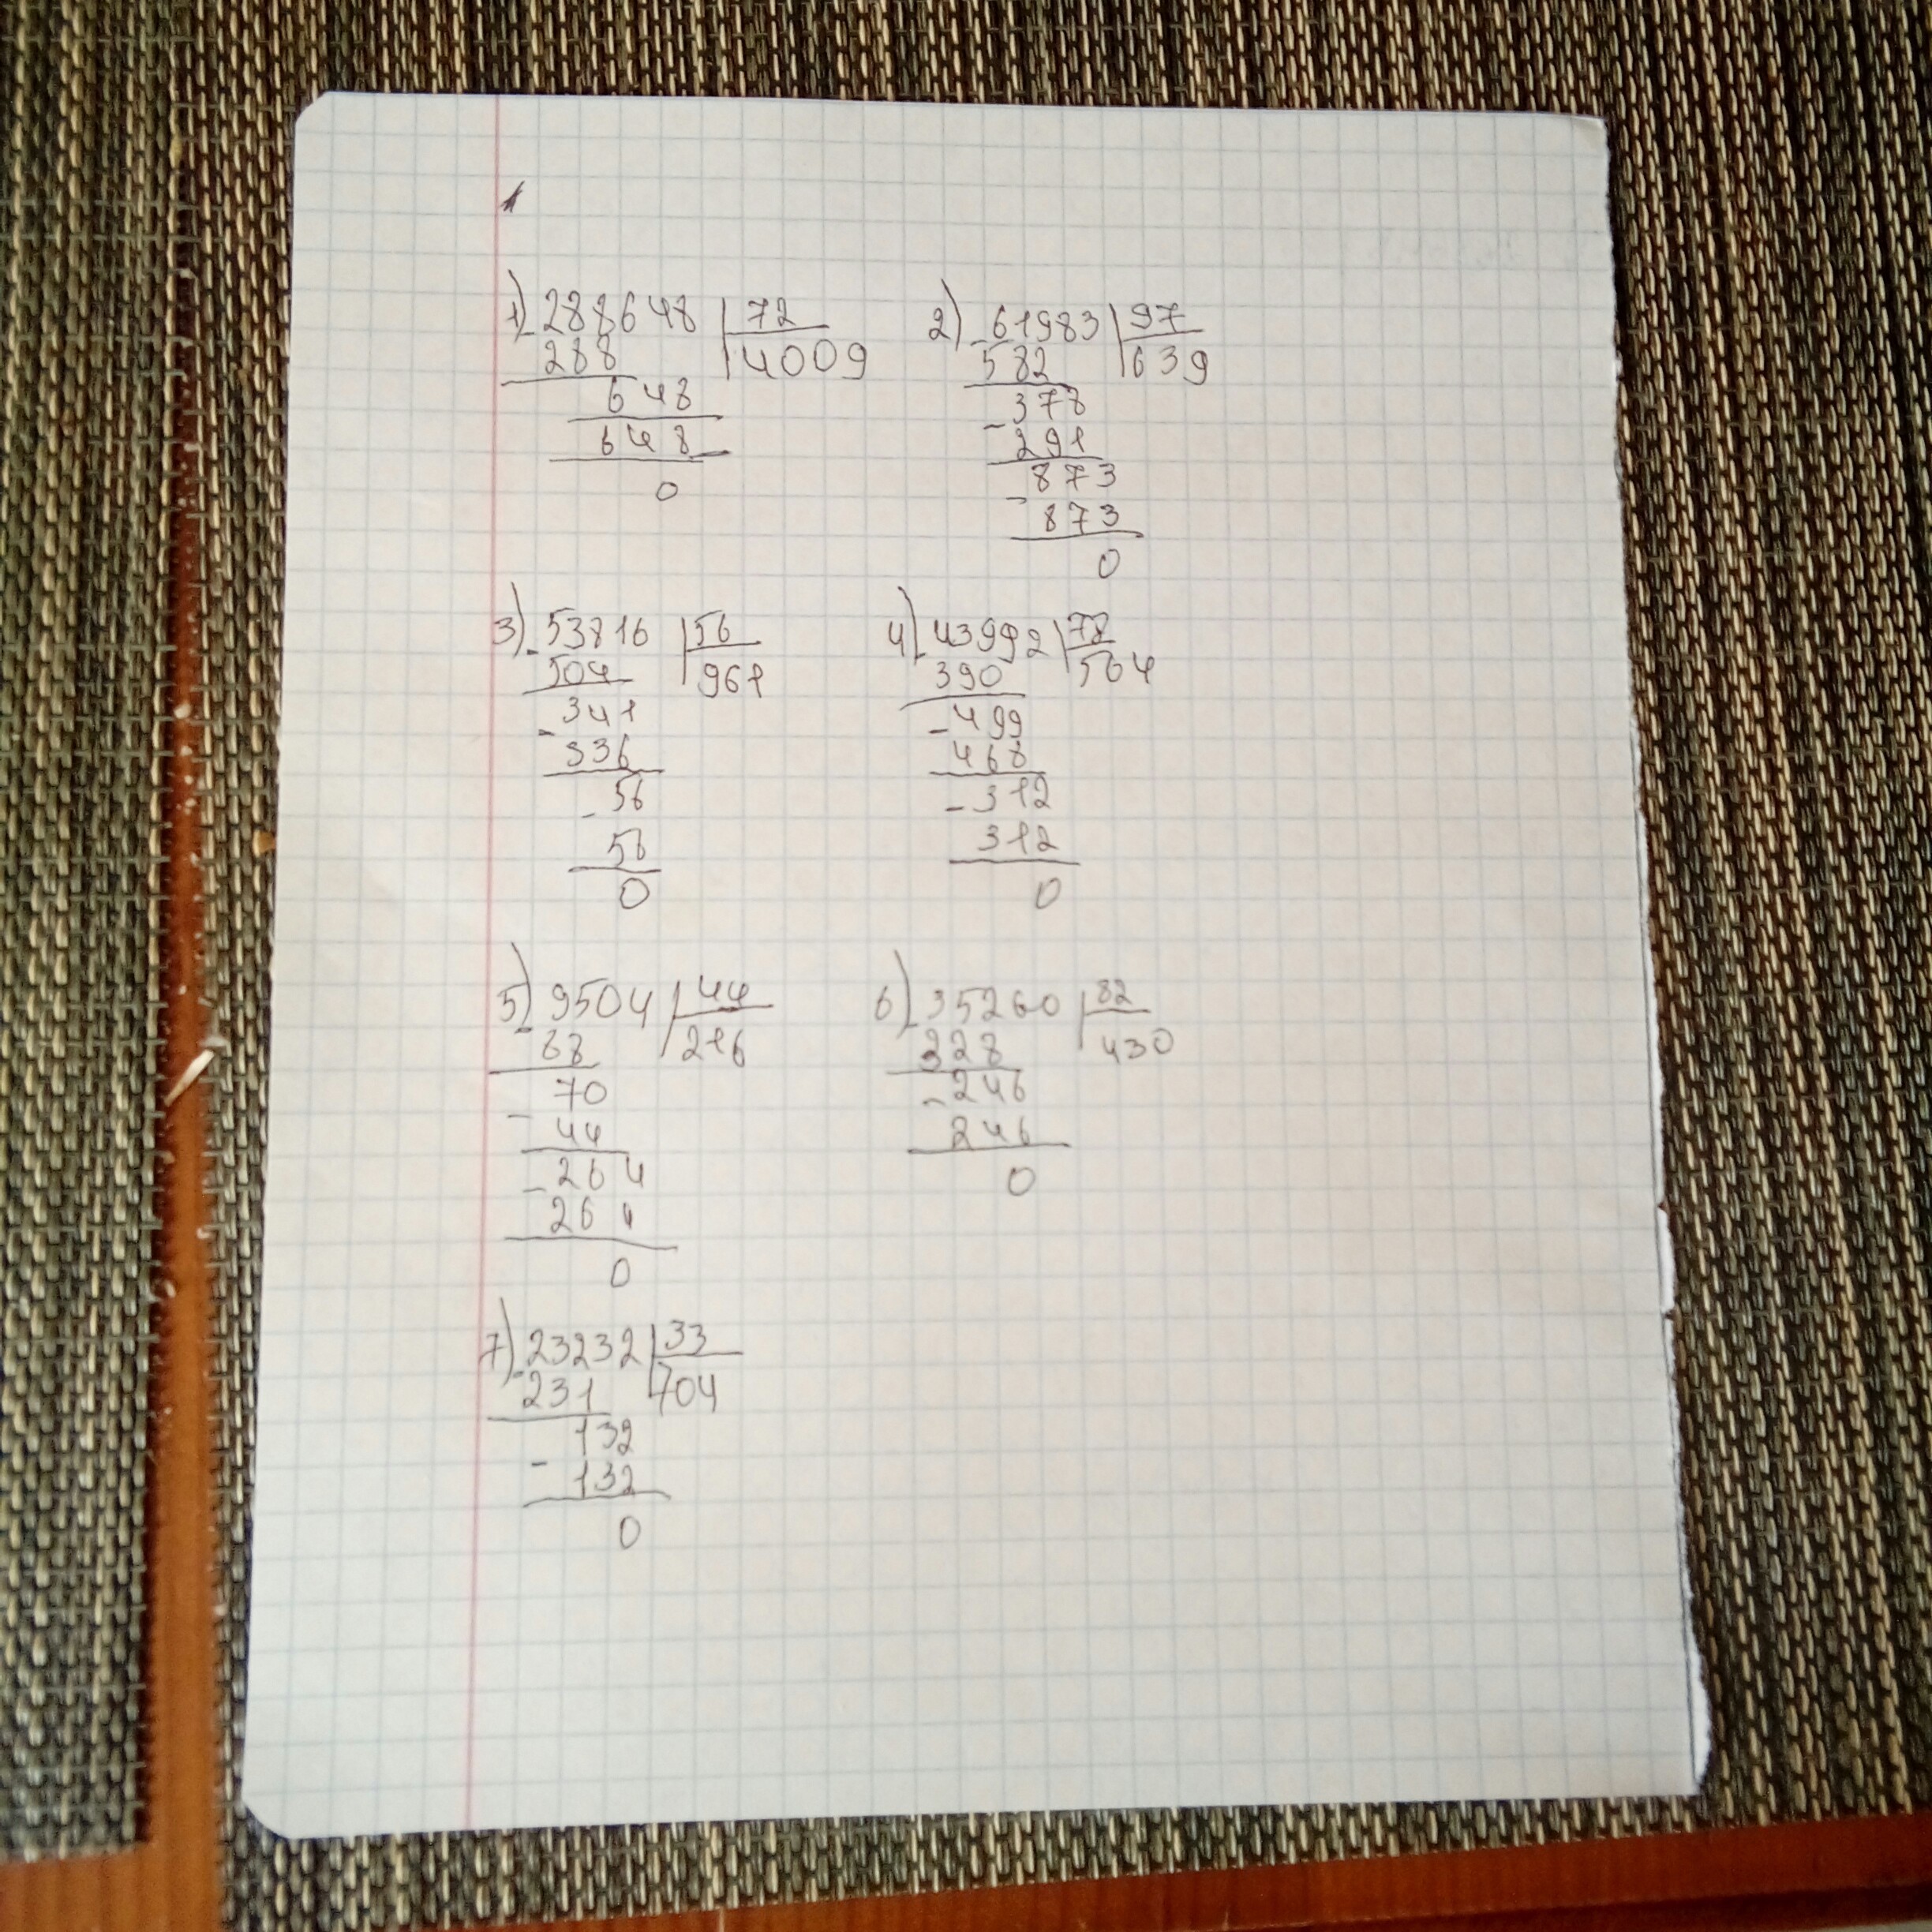 1) 288648 | 72
- 288 | 4009
648
648
0
2) 61983 | 97
- 582 | 639
378
- 291
873
- 873
0
3) 53816 | 56
- 504 | 961
341
- 336
56
- 56
0
4) 43992 | 78
- 390 | 564
- 499
468
- 312
312
0
5) 9504 | 44
- 88 | 216
70
- 44
- 264
264
0
6) 35260 | 82
- 328 | 430
- 246
246
0
7) 23232 | 33
- 231 | 704
132
- 132
0